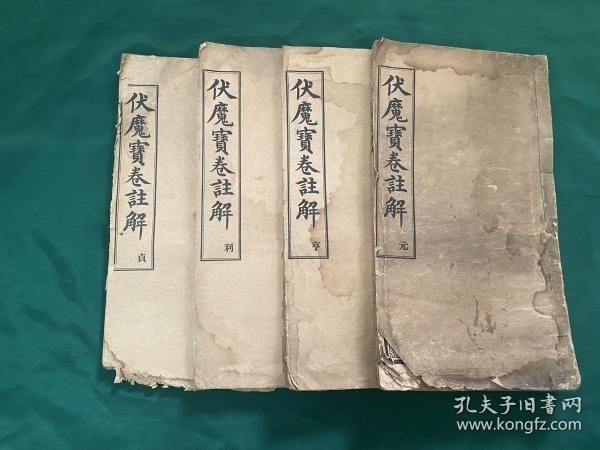 伏魔寶卷註解 元
伏魔寶卷註解 亨
伏魔寶卷註解 利
伏魔寶卷註解 貞
孔夫子旧书网
www.kongfz.com